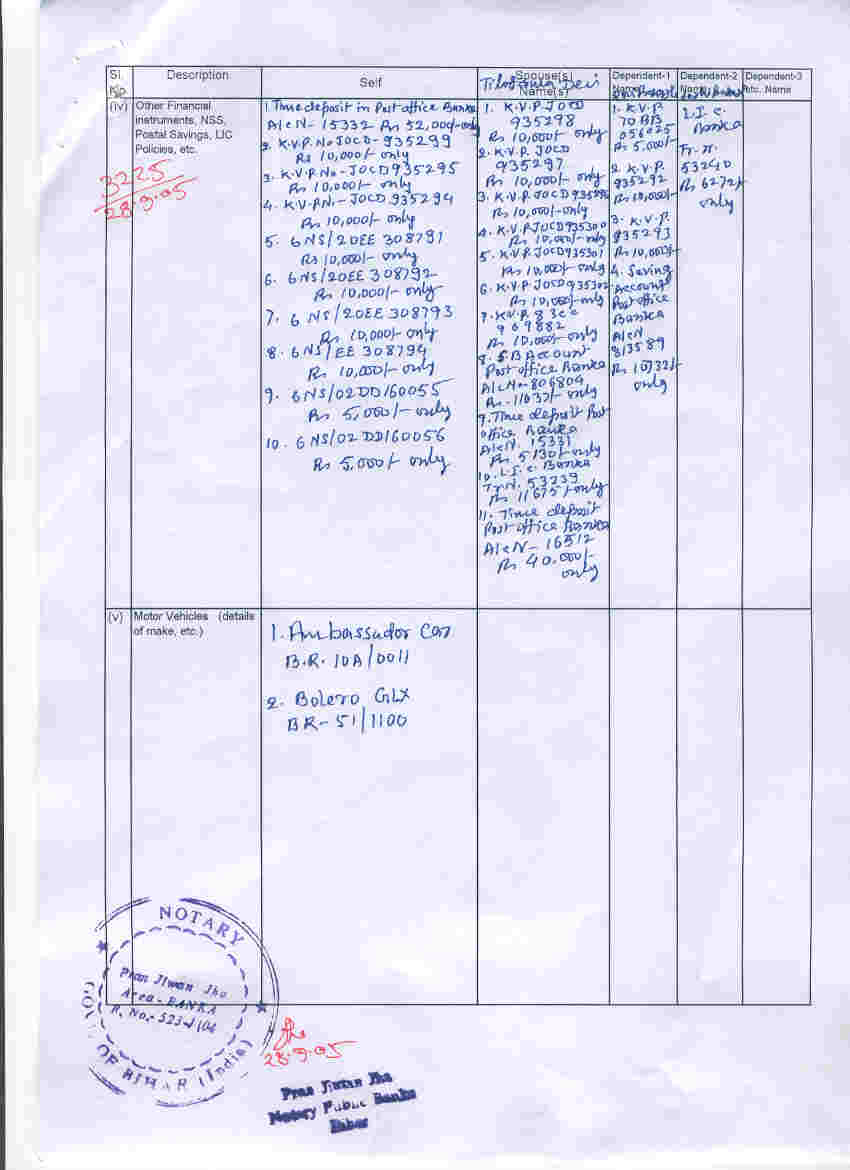 Sl. No.
Description
Self
Spouse(s) Name(s)
Dependent-1
Dependent-2
Dependent-3
etc. Name
(iv)
Other Financial
instruments, NSS,
Postal Savings, LIC
Policies, etc.
3225
28.9.05
1. Time deposit in Post office Banka
A/c N- 15332 Rs 52,000/- only
2. K.V.P. No JOCD-935299
Rs 10,000/- only
3. K.V.P. No-JOCD935295
Rs 10,000/- only
4. K.V.P.N.- JOCD 935294
Rs 10,000/- only
5. 6NS/20EE 308791
Rs 10,000/- only
6. 6NS/20EE 308792
Rs 10,000/- only
7. 6 NS/20EE 308793
Rs 10,000/- only
8. 6NS/EE 308794
Rs 10,000/- only
9. 6NS/02DD160055
Rs 5,000/- only
10. 6NS/02DD160056
Rs 5,000/- only
1. K.V.P JOCD
935298
Rs 10,000/- only
2. K.V.P. JOCD
935297
Rs 10,000/- only
3. K.V.P. JOCD
Rs 10,000/- only
4. K.V.P.JOCD935300
Rs 10,000/- only
5. K.V.P. JOCD935301
Rs 10,000/- only
6. K.V.P. JOCD935302
Rs 10,000/- only
7. K.V.P.
969882
Rs 10,000/- only
8. S.B Account
Post office Banka
A/c No-806804
Rs - only
9. Time deposit Post
office Banka
A/c N. 15331
Rs 5130/- only
10. L.I.C. Banka
53239
Rs 11675/- only
11. Time deposit
Post office Banka
A/c N- 16512
Rs 40.000/-
only
1. K.V.P.
056025
Rs 5,000/-
2. K.V.P.
935292
Rs 10,000/-
3. K.V.P.
935293
Rs 10,000/-
4. Saving
Account
Post office
Banka
A/c N
813589
only
L.I.C.
Banka
53240
Rs 6272/-
only
(v)
Motor Vehicles (details
of make, etc.)
1. Ambassador Car
B.R. 10A/0011
2. Bolero GLX
BR-51/1100
NOTARY
Pran Jiwan Jha
Area - BANKA
GOVT. OF BIHAR (India)
28.9.05
Pran Jiwan Jha
Notary Public Banka
Bihar